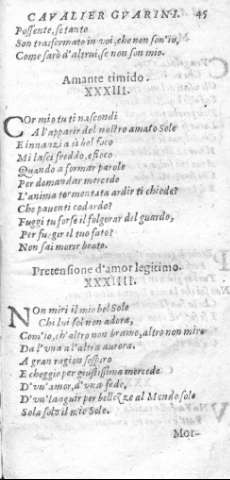 CAVALIER GVARINI. 45
Possente, se tanto
Son trasformato in voi, che non son'io,
Come sarò d'altrui, se non son mio.
Amante timido.
XXXIII.
COr mio tu ti nascondi
A l'apparir del nostro amato Sole
E innanzi a sì bel foco
Mi lasci freddo, e fioco
Quando a formar parole
Per domandar mercede
L'anima tormentata ardir ti chiede?
Che paventi codardo?
Fuggi tu forse il folgorar del guardo,
Per fuggir il tuo fato?
Non sai morir beato.
Pretensione d'amor legitimo.
XXXIIII.
NOn miri il mio bel Sole
Chi lui sol non adora,
Com'io, ch'altro non bramo, altro non miro
Da l'vna a l'altra aurora.
A gran ragion sospiro
E cheggio per giustissima mercede
D'vn'amor, d'vna fede,
D'vn languir per bellezze al Mondo sole
Sola solo il mio Sole.
Mor-